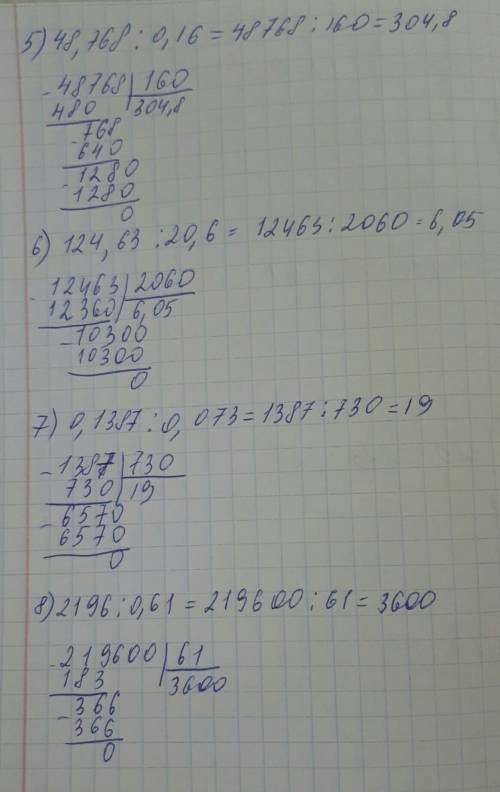 5) 48,768 : 0,16 = 48768 : 160 = 304,8
- 48768 | 160
480 304,8
- 768
640
- 1280
- 1280
0
6) 124,63 : 20,6 = 12463 : 2060 = 6,05
- 12463 | 2060
12360 | 6,05
- 10300
10300
0
7) 0,1387 : 0,073 = 1387 : 730 = 19
- 1387 | 730
730 | 19
- 6570
6570
0
8) 2196 : 0,61 = 219600 : 61 = 3600
- 219600 | 61
183 3600
- 366
366
0